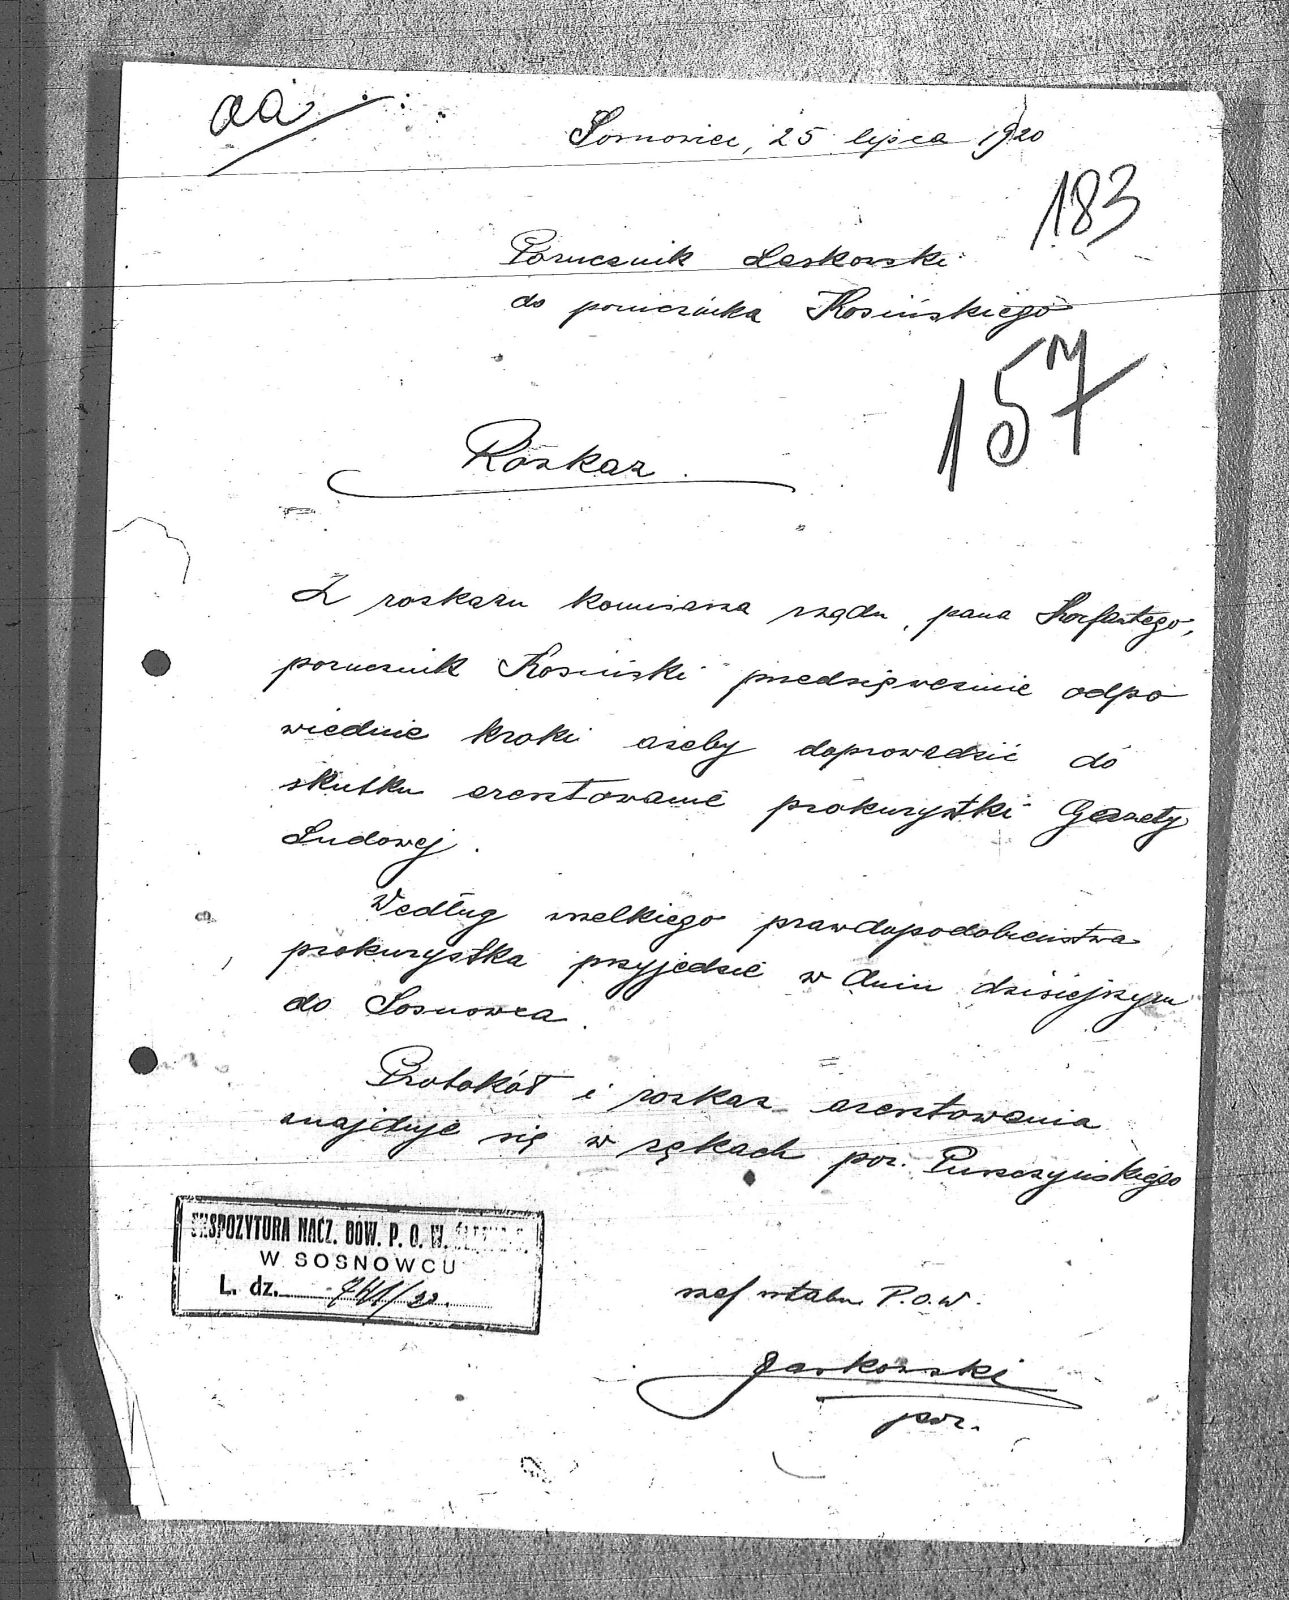 aa
Sosnowiec, 25 lipca 1920
183
Porucznik Laskowski
do porucznika Kosińskiego
157
Rozkaz.
Z rozkazu komisarza rządu, pana Korfantego,
porucznik Kosiński przedsięweźmie odpo
wiednie kroki ażeby doprowadzić do
skutku aresztowanie prokurystki Gazety
Ludowej.
Według wszelkiego prawdopodobieństwa
prokurystka przyjedzie w dniu dzisiejszym
do Sosnowca.
Protokół i rozkaz aresztowania
znajduje się w rękach por. Puszczyńskiego
EKSPOZYTURA NACZ. DOW. P. O. W.
W SOSNOWCU
L. dz. 741/22.
szef sztabu P.O.W.
por.